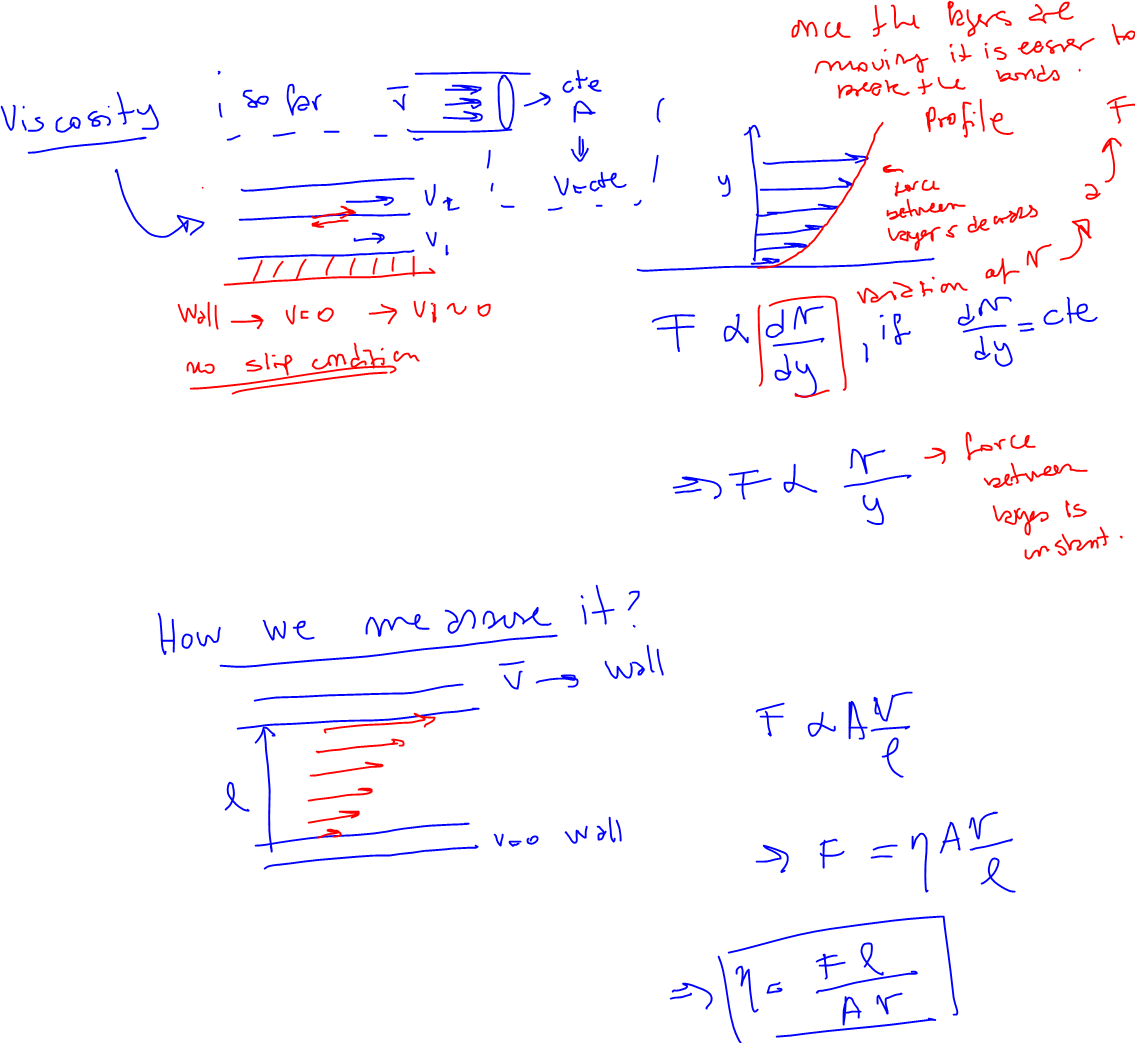 Viscosity ; so far v̄ → cte
A
⇓
V=cte
V₂
V₁
Wall → V=0 → V₁~0
no slip condition
once the layers are
moving it is easier to
break the bonds.
Profile
y
force
between
layers decreases
variation of v → a → F
F α dv/dy , if dv/dy = cte
⇒ F α v/y → force
between
layers is
constant.
How we measure it?
v̄ → wall
l
v=0 wall
F α A v/l
⇒ F = η A v/l
⇒ η = F l / A v